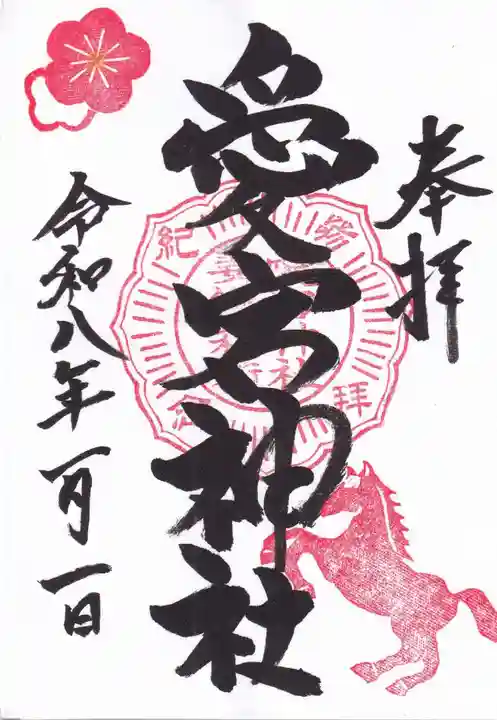 奉拝
愛宕神社
令和八年一月一日